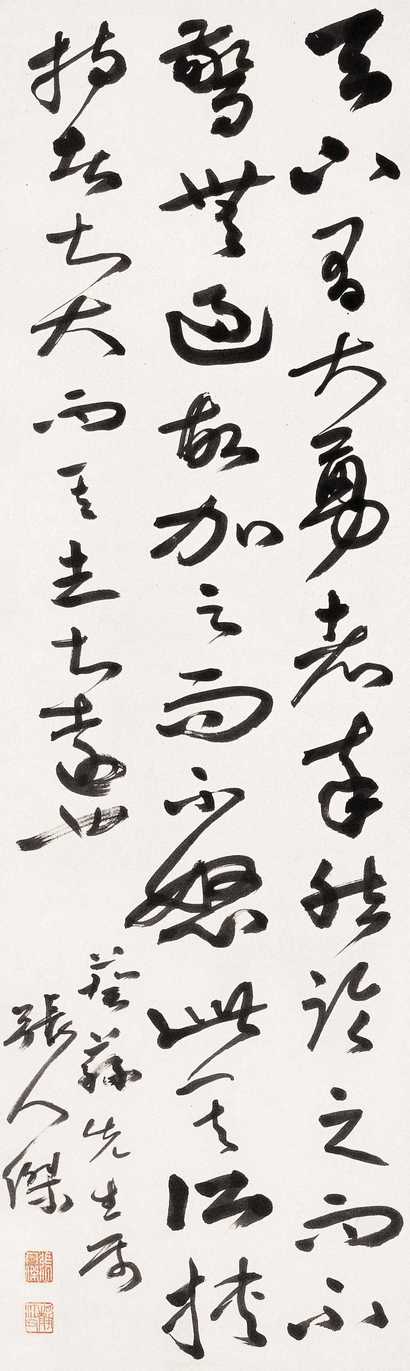 天下有大勇者卒然臨之而不
驚無過故加之而不怒此其所挾
持者甚大而其志甚遠也
先生属
張人傑